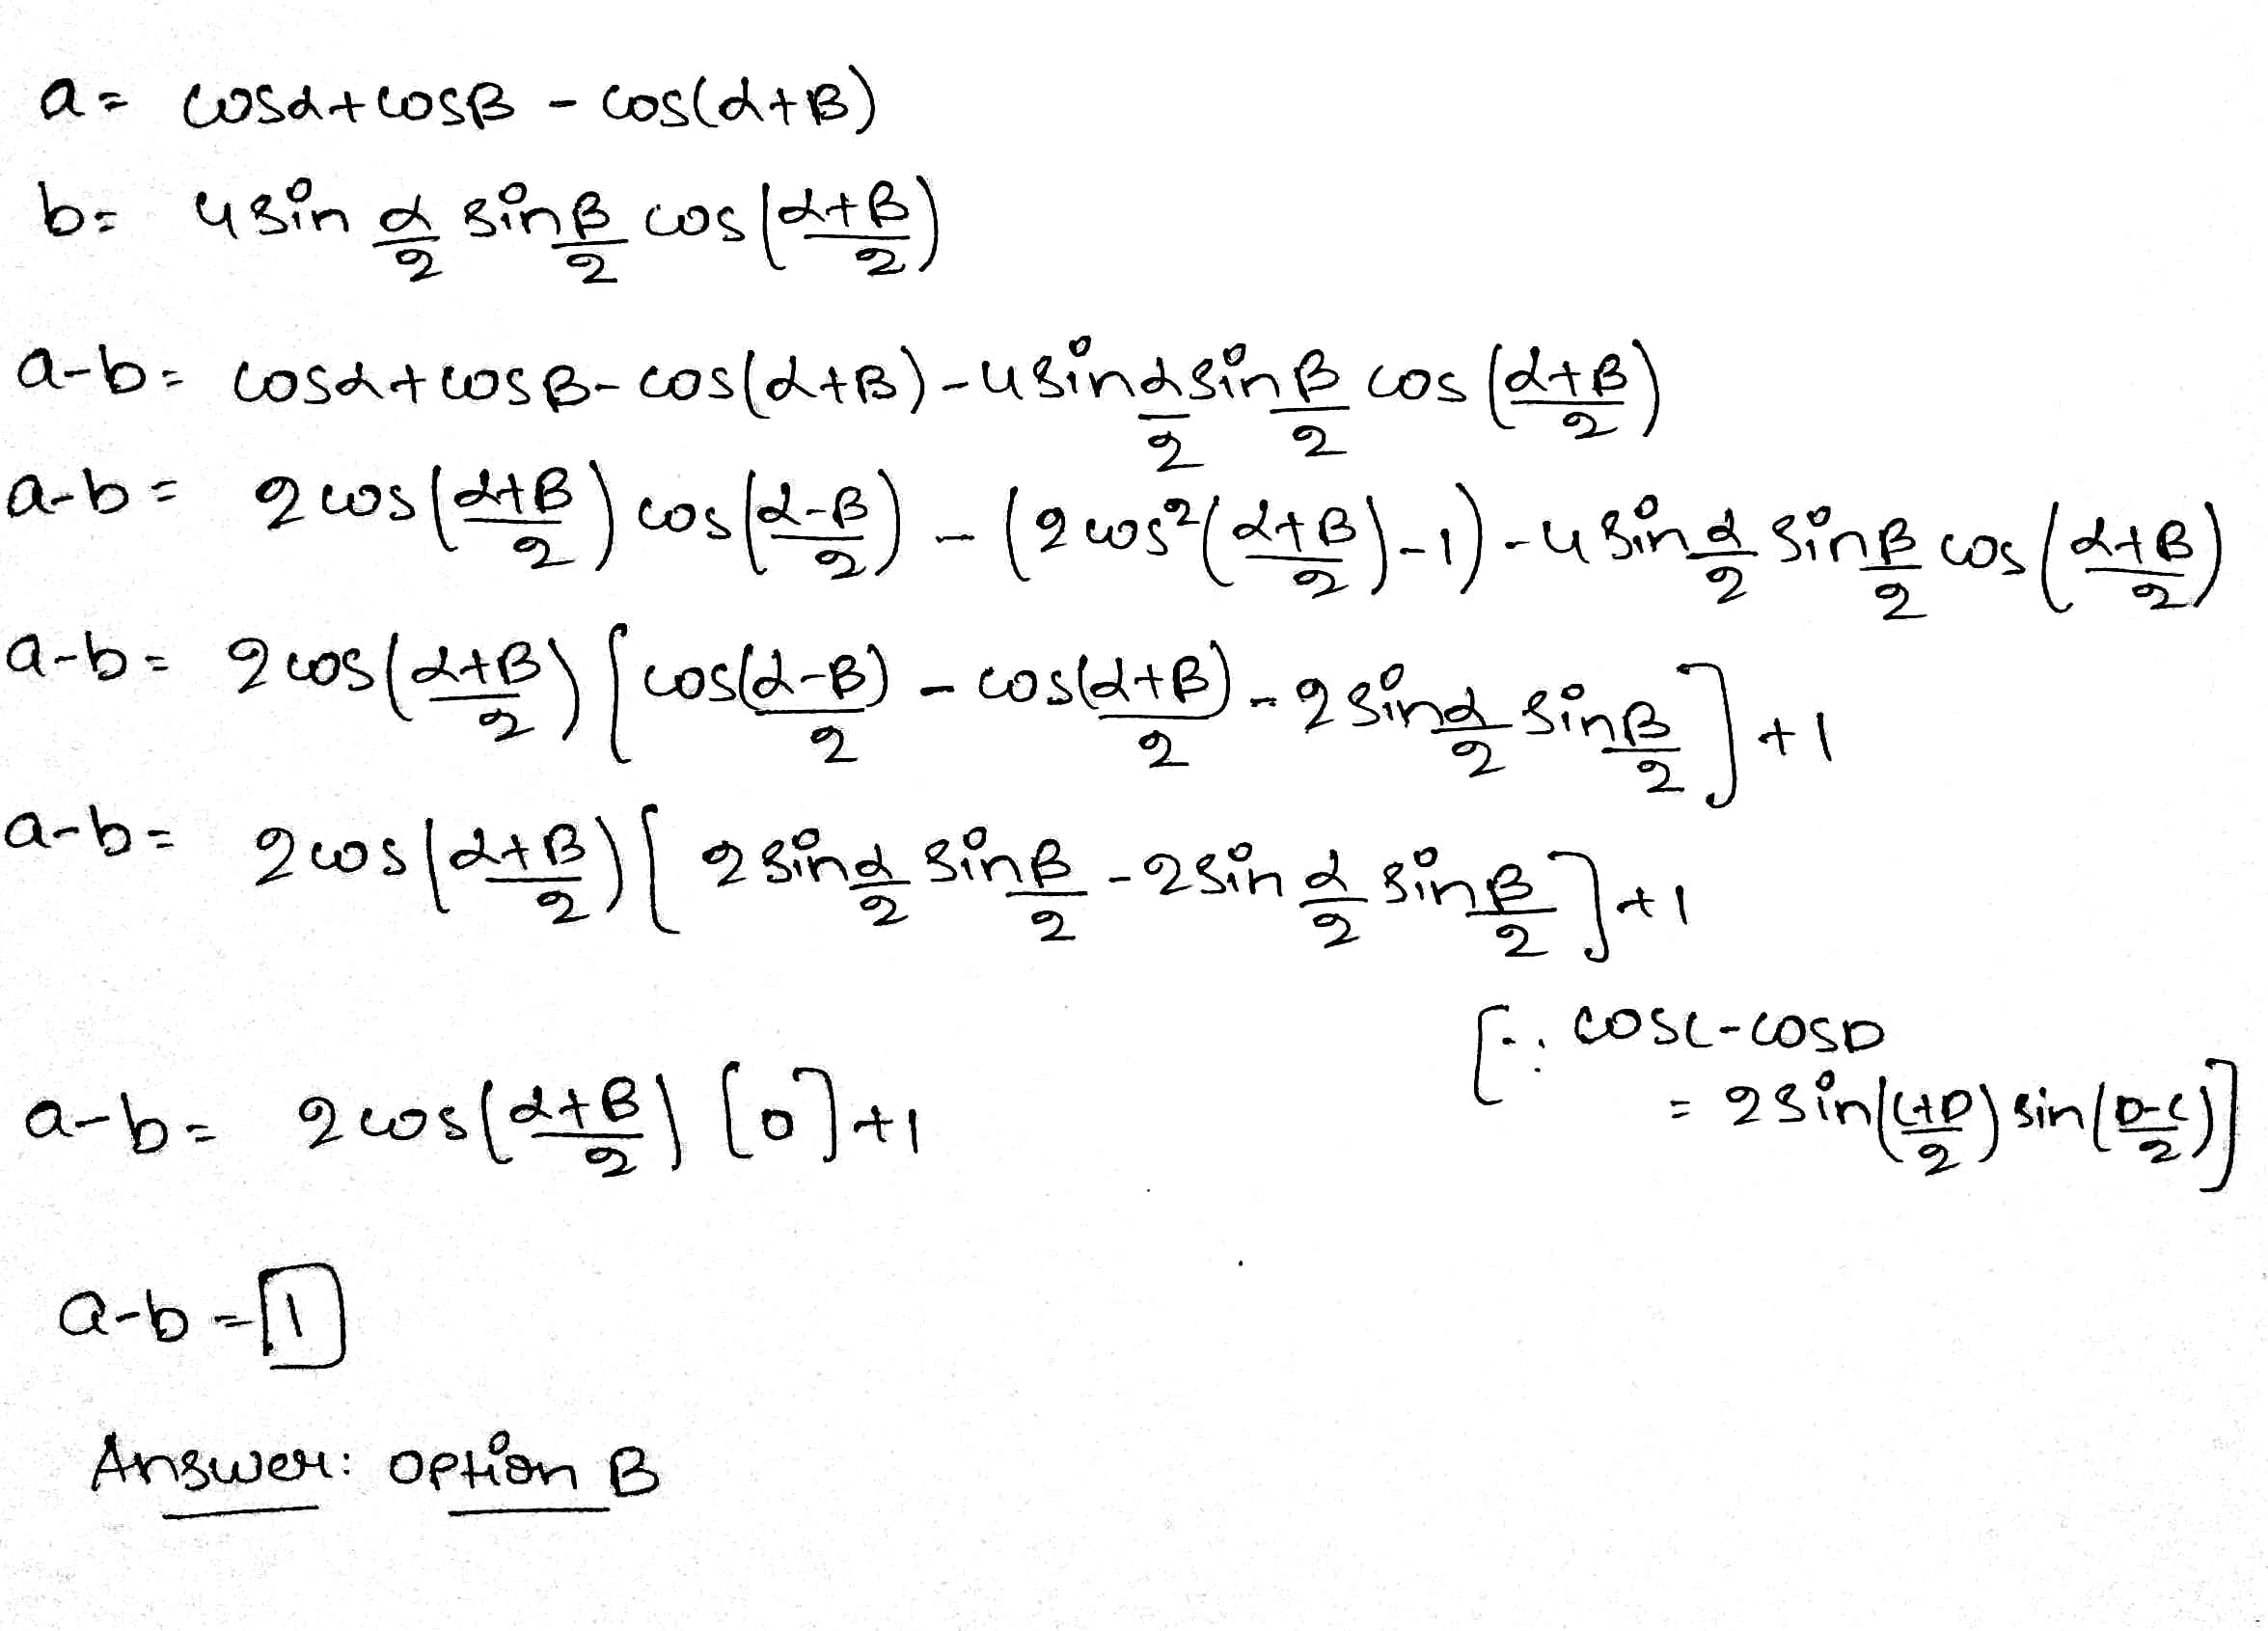 a = cosα+cosβ - cos(α+β)
b = 4 sin α/2 sin β/2 cos (α+β/2)
a-b = cosα+cosβ-cos(α+β)-4 sin α/2 sin β/2 cos (α+β/2)
a-b = 2 cos (α+β/2) cos (α-β/2) - (2 cos²(α+β/2)-1) -4 sin α/2 sin β/2 cos (α+β/2)
a-b = 2 cos (α+β/2) [cos(α-β)/2 - cos(α+β)/2 - 2 sin α/2 sin β/2] +1
a-b = 2cos (α+β/2) [2 sin α/2 sin β/2 - 2 sin α/2 sin β/2] +1
[∵ cosC-cosD
= 2 sin(C+D/2) sin(D-C/2)]
a-b = 2 cos (α+β/2) [0] +1
a-b = 1
Answer: Option B